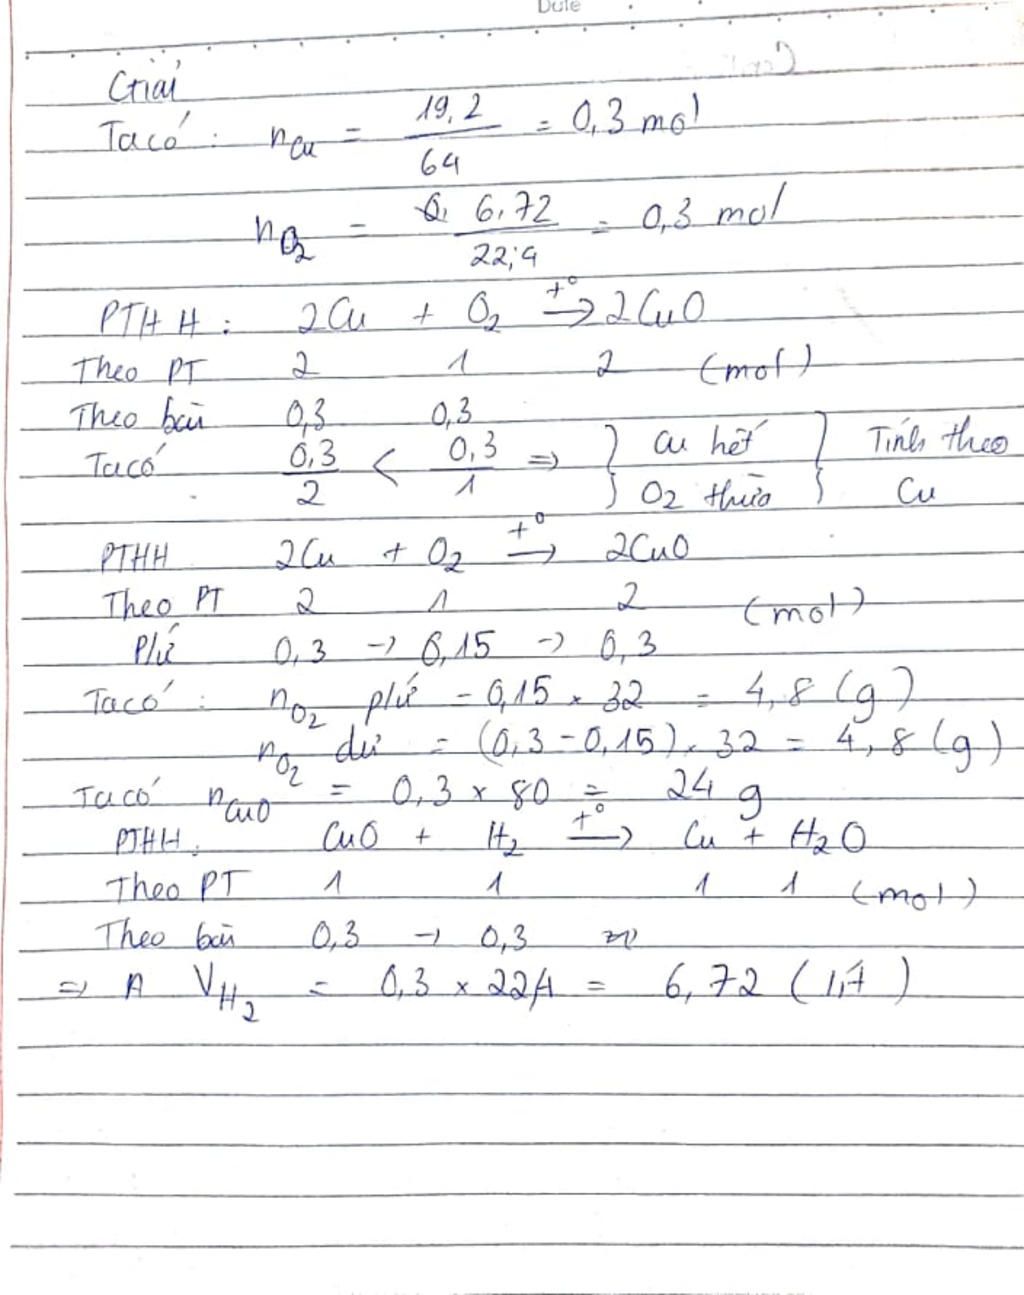 Date
Giải
Ta có: nCu = 19,2 / 64 = 0,3 mol
nO2 = 6,72 / 22,4 = 0,3 mol
PTHH: 2Cu + O2 t°→ 2CuO
Theo PT 2 1 2 (mol)
Theo bài 0,3 0,3
Ta có 0,3/2 < 0,3/1 => } Cu hết O2 thừa } Tính theo Cu
PTHH 2Cu + O2 t°→ 2CuO
Theo PT 2 1 2 (mol)
P/ứ 0,3 → 0,15 → 0,3
Ta có: nO2 p/ứ = 0,15 × 32 = 4,8 (g)
nO2 dư = (0,3 - 0,15). 32 = 4,8 (g)
Ta có nCuO = 0,3 × 80 = 24 g
PTHH: CuO + H2 t°→ Cu + H2O
Theo PT 1 1 1 1 (mol)
Theo bài 0,3 → 0,3
=> VH2 = 0,3 × 22,4 = 6,72